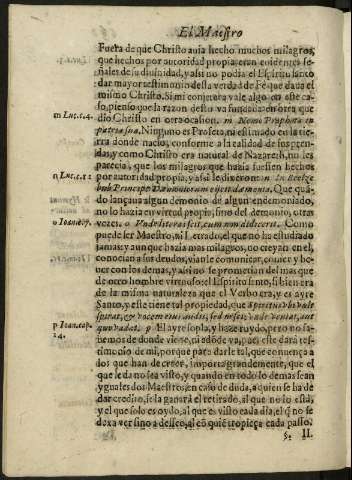 El Maestro
Fuera de que Christo auia hecho muchos milagros,
que hechos por autoridad propia, eran euidentes se-
ñales de su diuinidad, y assi no podia el Espiritu santo
dar mayor testimonio desta verdad de Fè que daua el
mismo Christo. Si mi conjetura vale algo en este ca-
so, pienso que la razon desto va fundada en otra que
m Luc.c.4.
diò Christo en otra ocasion. m Nemo Propheta in
patria sua. Ninguno es Profeta, ni estimado en la tie-
rra donde naciò, conforme a la calidad de sus pren-
das, y como Christo era natural de Nazareth, no les
parecia, que los milagros que hazia fuessen hechos
n Luc.c.11
por autoridad propia, y assi le dixeron n In Beelze
bub Principe Dæmoniorum eijcit dæmonia. Que quã-
do lançaua algun demonio de algun endemoniado,
no lo hazia en virtud propia, sino del demonio, otras
o Ioan.c.7.
vezes, o Vnde literas scit, cum non didicerit. Como
puede ser Maestro, ni Letrado el que no ha estudiado
jamas; y aunque hazia mas milagros, no creyan en el,
conocian a sus deudos, vianle comunicar, comer, y be-
uer con los demas, y assi no se prometian del mas que
de otro hombre virtuoso: el Espiritu santo, si bien era
de la misma naturaleza que el Verbo era, y es ayre
Santo, y este tiene tal propiedad, que Spiritus vbi vult
spirat, & vocem eius audis, sed nescis vnde veniat, aut
p Ioan.cap.
quo vadat. p El ayre sopla, y haze ruydo, pero no sa-
14.
bemos de donde viene, ni adõde va, pues este darà tes-
timonio de mi, porque para darle tal, que conuença a
los que han de creer, importa grandemente, que el
que le da no sea visto, y quando en todo lo demas seã
yguales dos Maestros, en caso de duda, a quien se ha de
dar credito, se la ganarà el retirado, al que no lo està,
y el que solo es oydo, al que es visto cada dia, el q no se
dexa ver sino a desseo, al cõ quiẽ tropieça cada passo.
§. II.